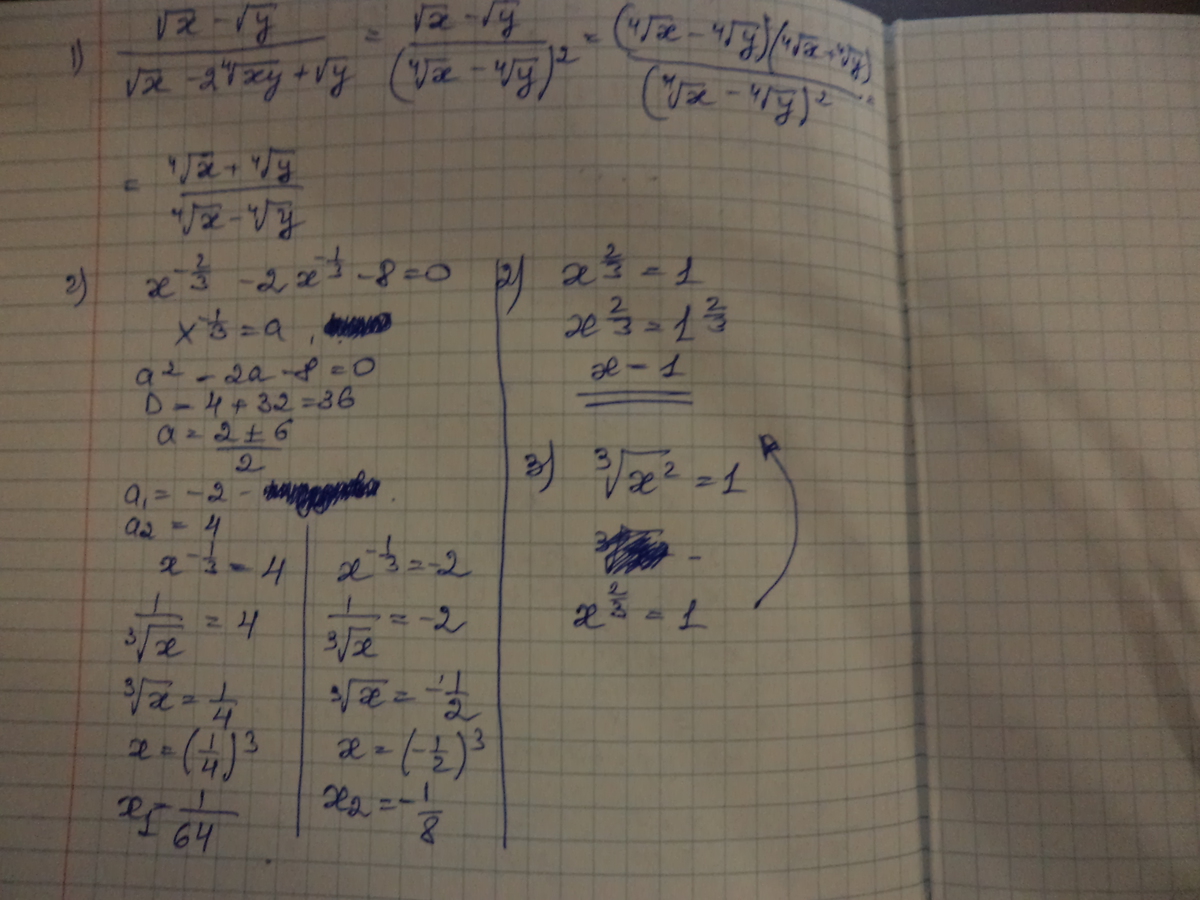 1) (√x − √y)/(√x − 2⁴√xy + √y) = (√x − √y)/(⁴√x − ⁴√y)² = (⁴√x − ⁴√y)(⁴√x + ⁴√y)/(⁴√x − ⁴√y)² =
= (⁴√x + ⁴√y)/(⁴√x − ⁴√y)
2) x^(-2/3) − 2x^(-1/3) − 8 = 0
x^(-1/3) = a,
a² − 2a − 8 = 0
D − 4 + 32 = 36
a = (2 ± 6)/2
a₁ = −2 −
a₂ = 4
x^(-1/3) = 4
1/³√x = 4
³√x = 1/4
x = (1/4)³
x₁ − 1/64
x^(-1/3) = −2
1/³√x = −2
³√x = −1/2
x = (−1/2)³
x₂ = −1/8
2) x^(2/3) = 1
x^(2/3) = 1^(2/3)
x − 1
3) ³√x² = 1
x^(2/3) = 1